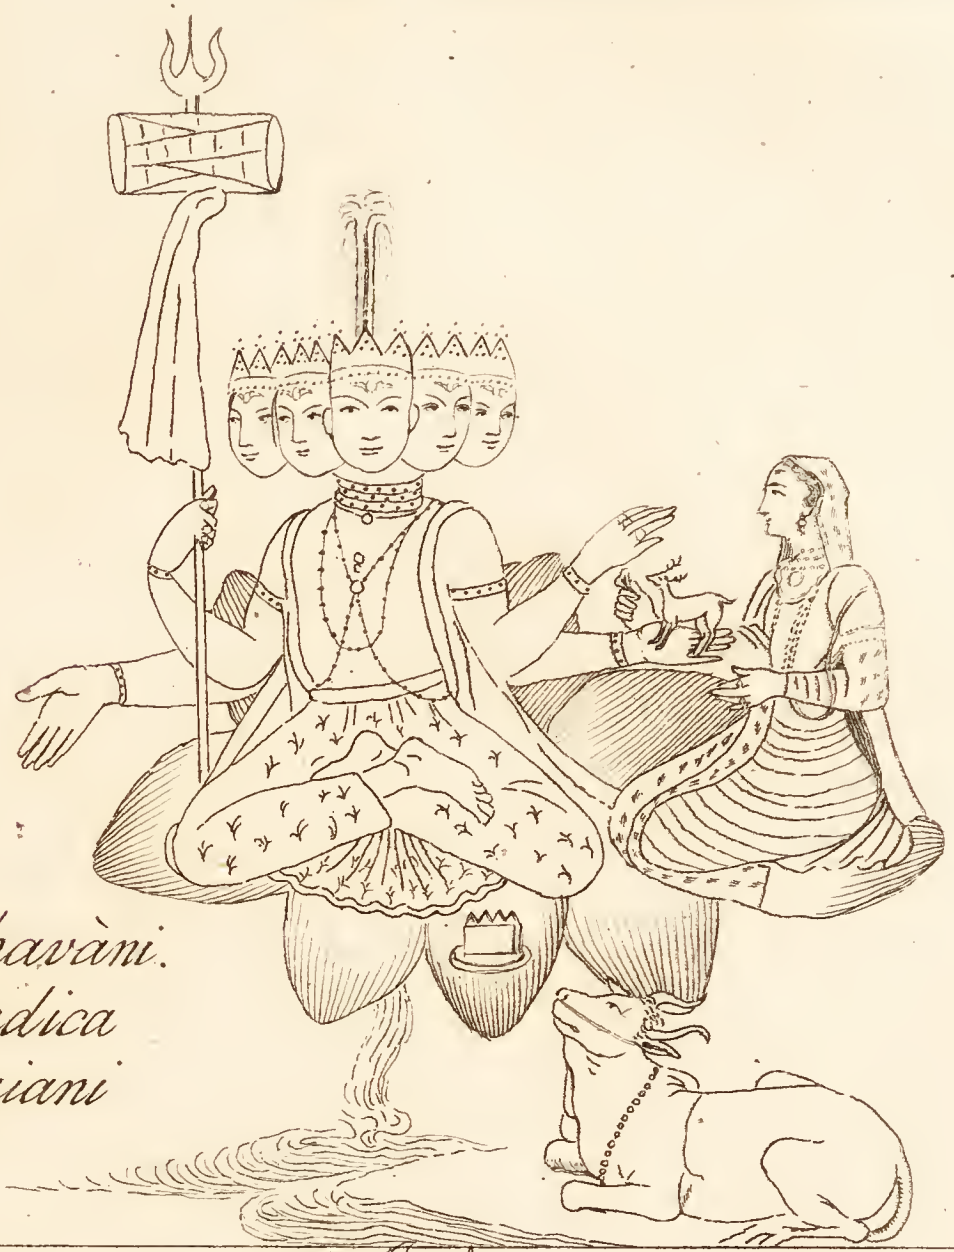 havàni.
dica
iani